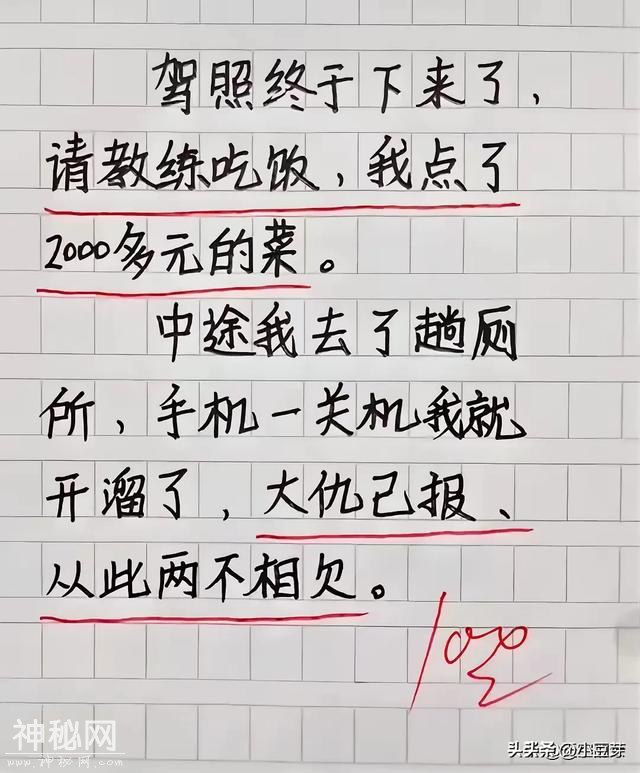 驾照终于下来了，
请教练吃饭，我点了
2000多元的菜。
中途我去了趟厕
所，手机一关机我就
开溜了，大仇已报、
从此两不相欠。
100
神秘网
www.神秘网.com
头条@小豆芽